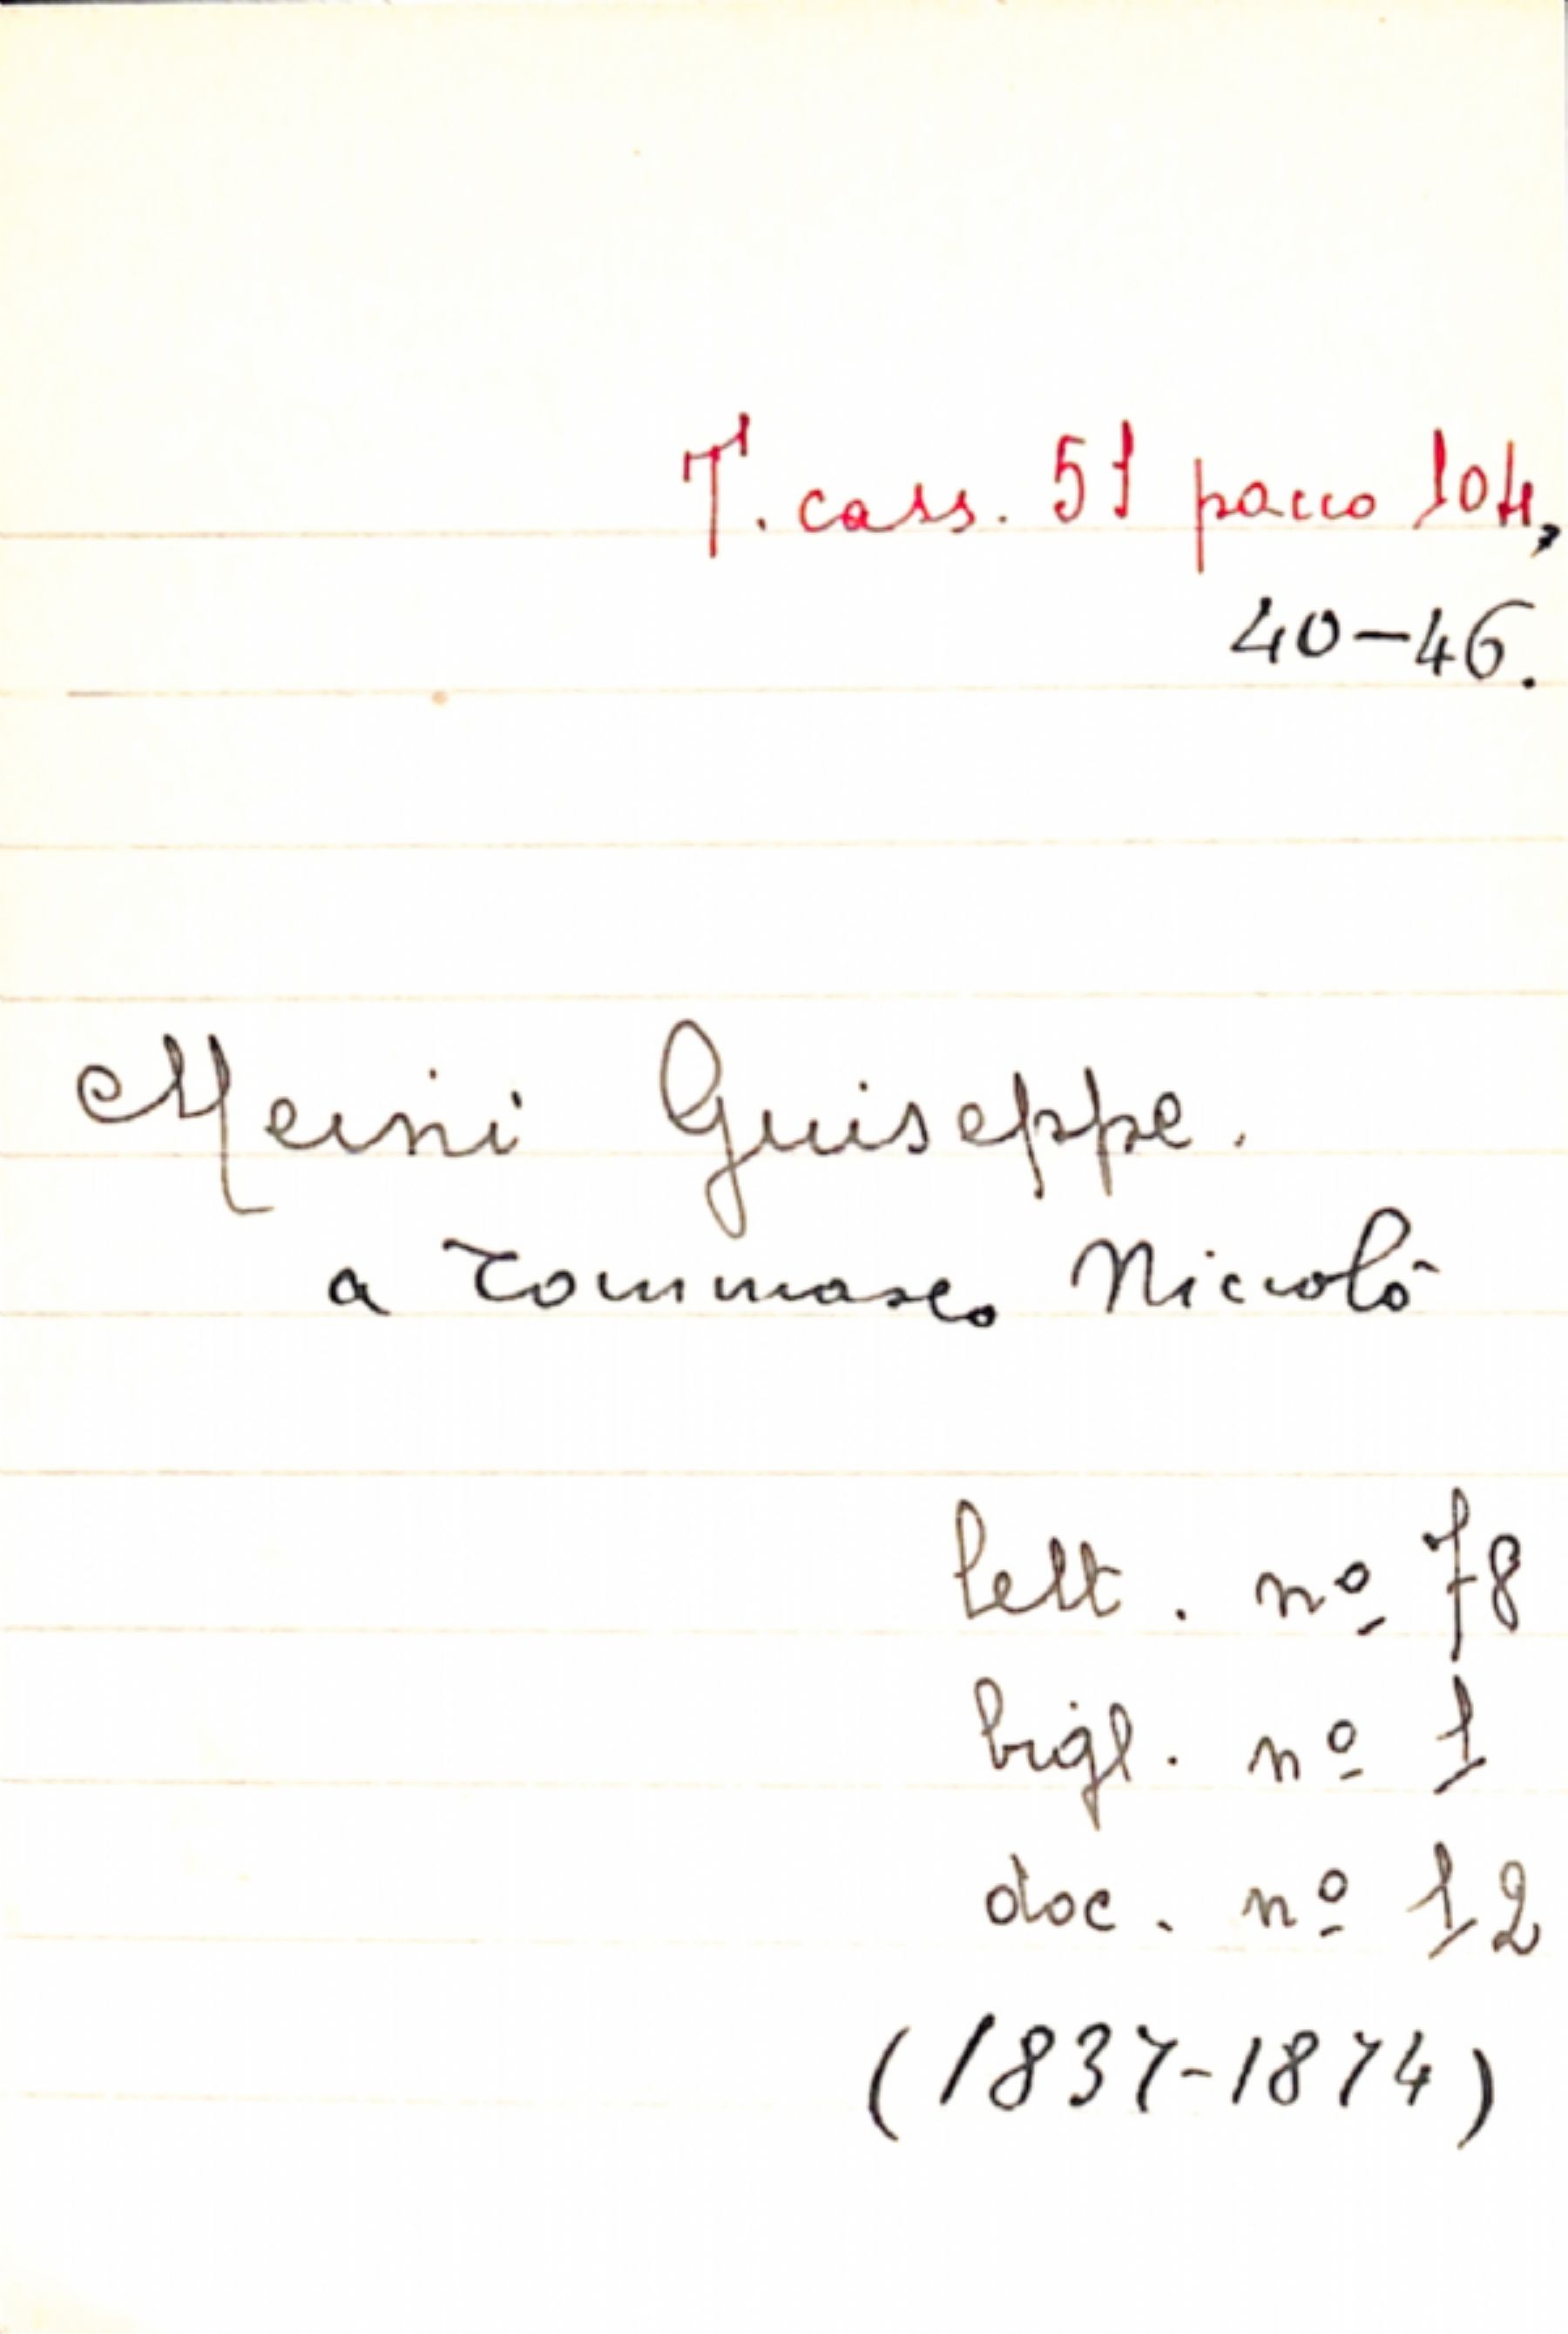 T. cass. 51 pacco 104,
40-46.
Meini Giuseppe.
a Tommaseo Niccolò
lett. nº 78
bigl. nº 1
doc. nº 12
(1837-1874)